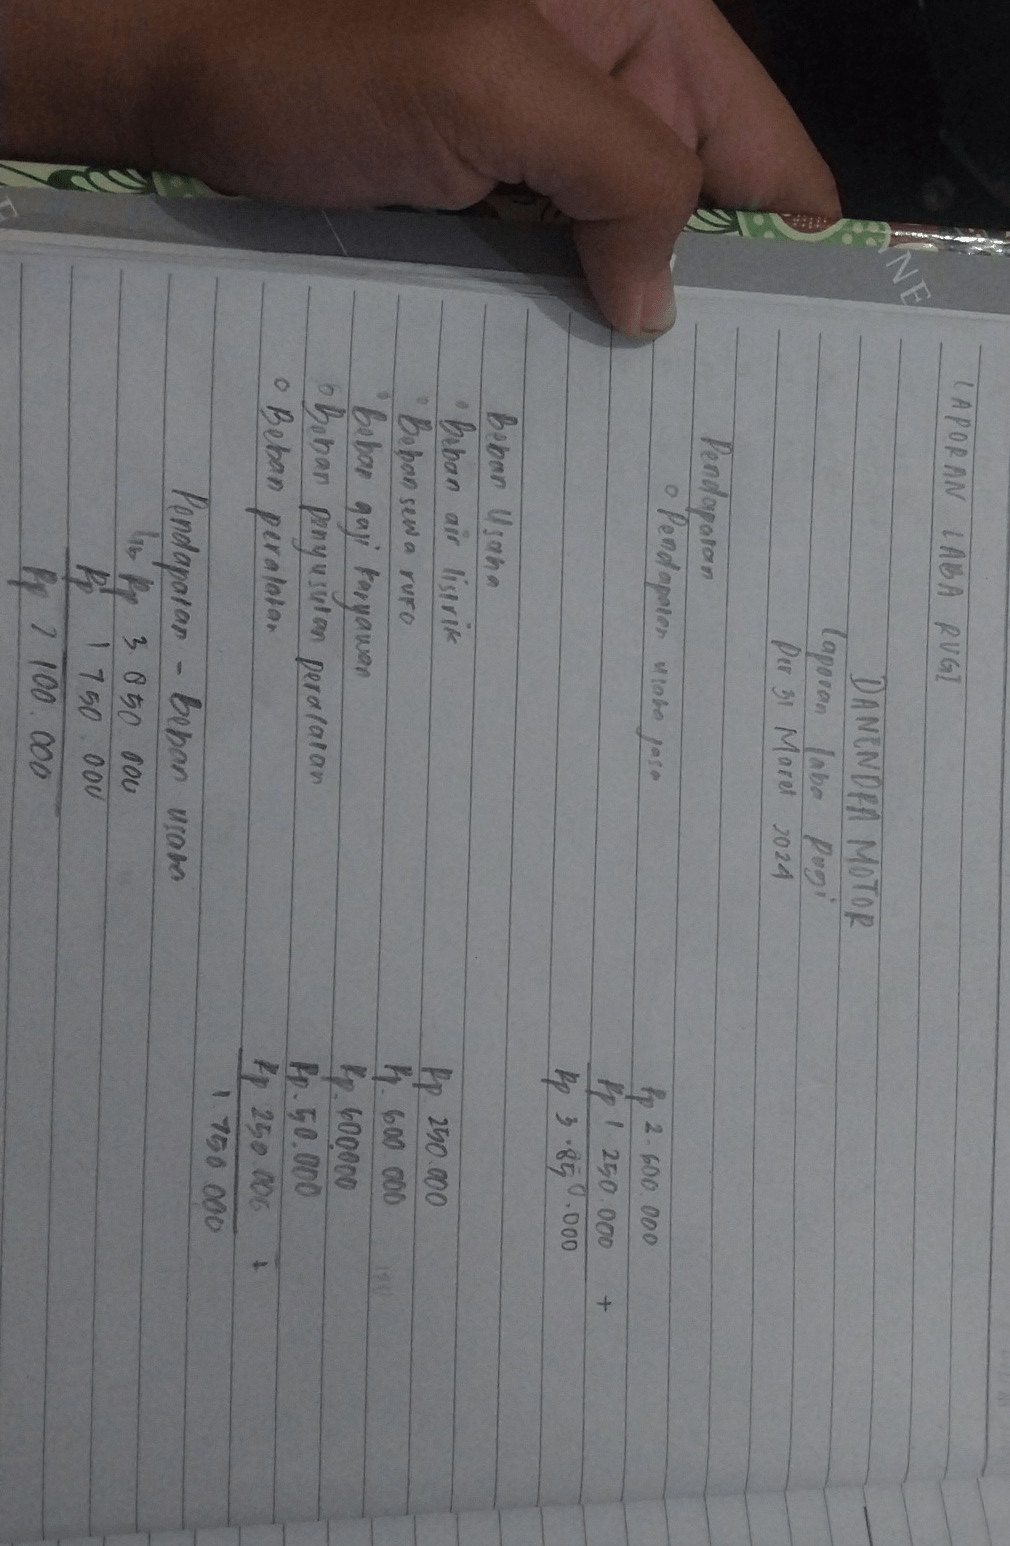 LAPORAN LABA RUGI
DANENDRA MOTOR
Laporan laba Rugi
Per 31 Maret 2024
Pendapatan
o Pendapatan usaha jasa Rp 2.600.000
Rp 1.250.000 +
Rp 3.850.000
Beban Usaha
o Beban air listrik Rp 250.000
o Beban sewa ruko Rp. 600.000
o Beban gaji karyawan Rp. 600.000
o Beban penyusutan peralatan Rp. 50.000
o Beban peralatan Rp 250.000 +
1 750 000
Pendapatan - Beban usaha
Rp 3 850 000
Rp 1 750. 000
Rp 2 100. 000
NE